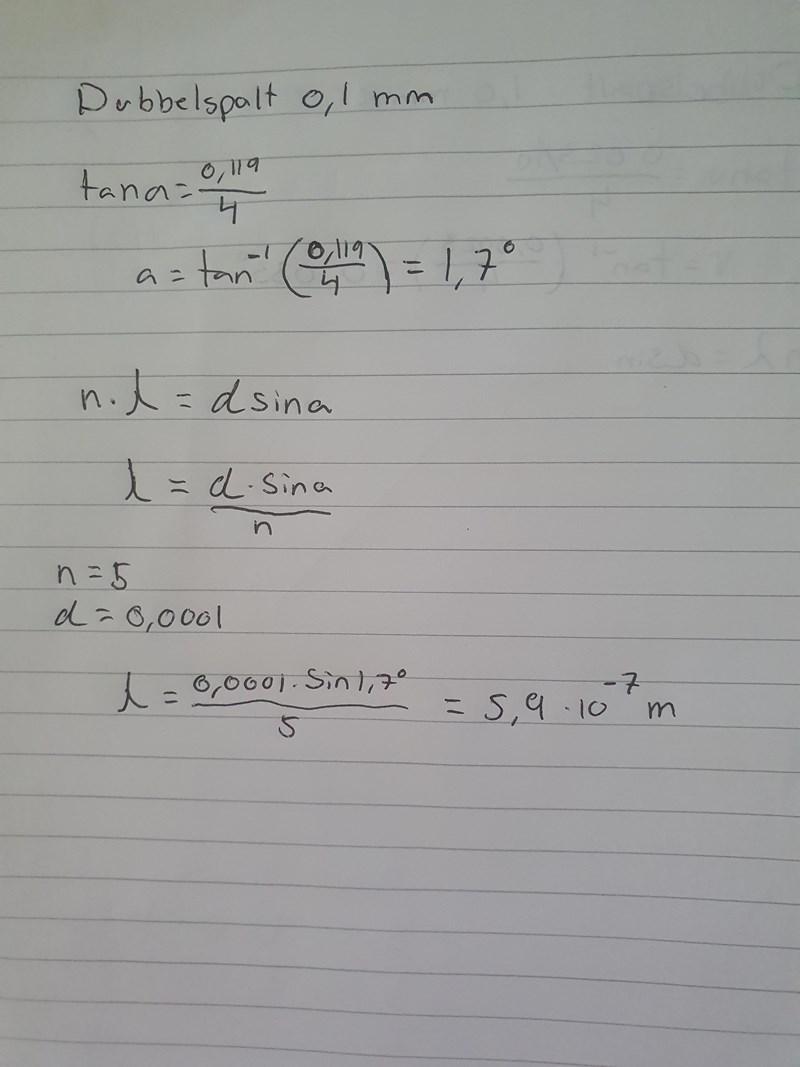 Dubbelspalt 0,1 mm
tan a = 0,119/4
a = tan⁻¹ (0,119/4) = 1,7°
n · λ = d sin a
λ = d · sin a / n
n = 5
d = 0,0001
λ = 0,0001 · Sin 1,7° / 5 = 5,9 · 10⁻⁷ m